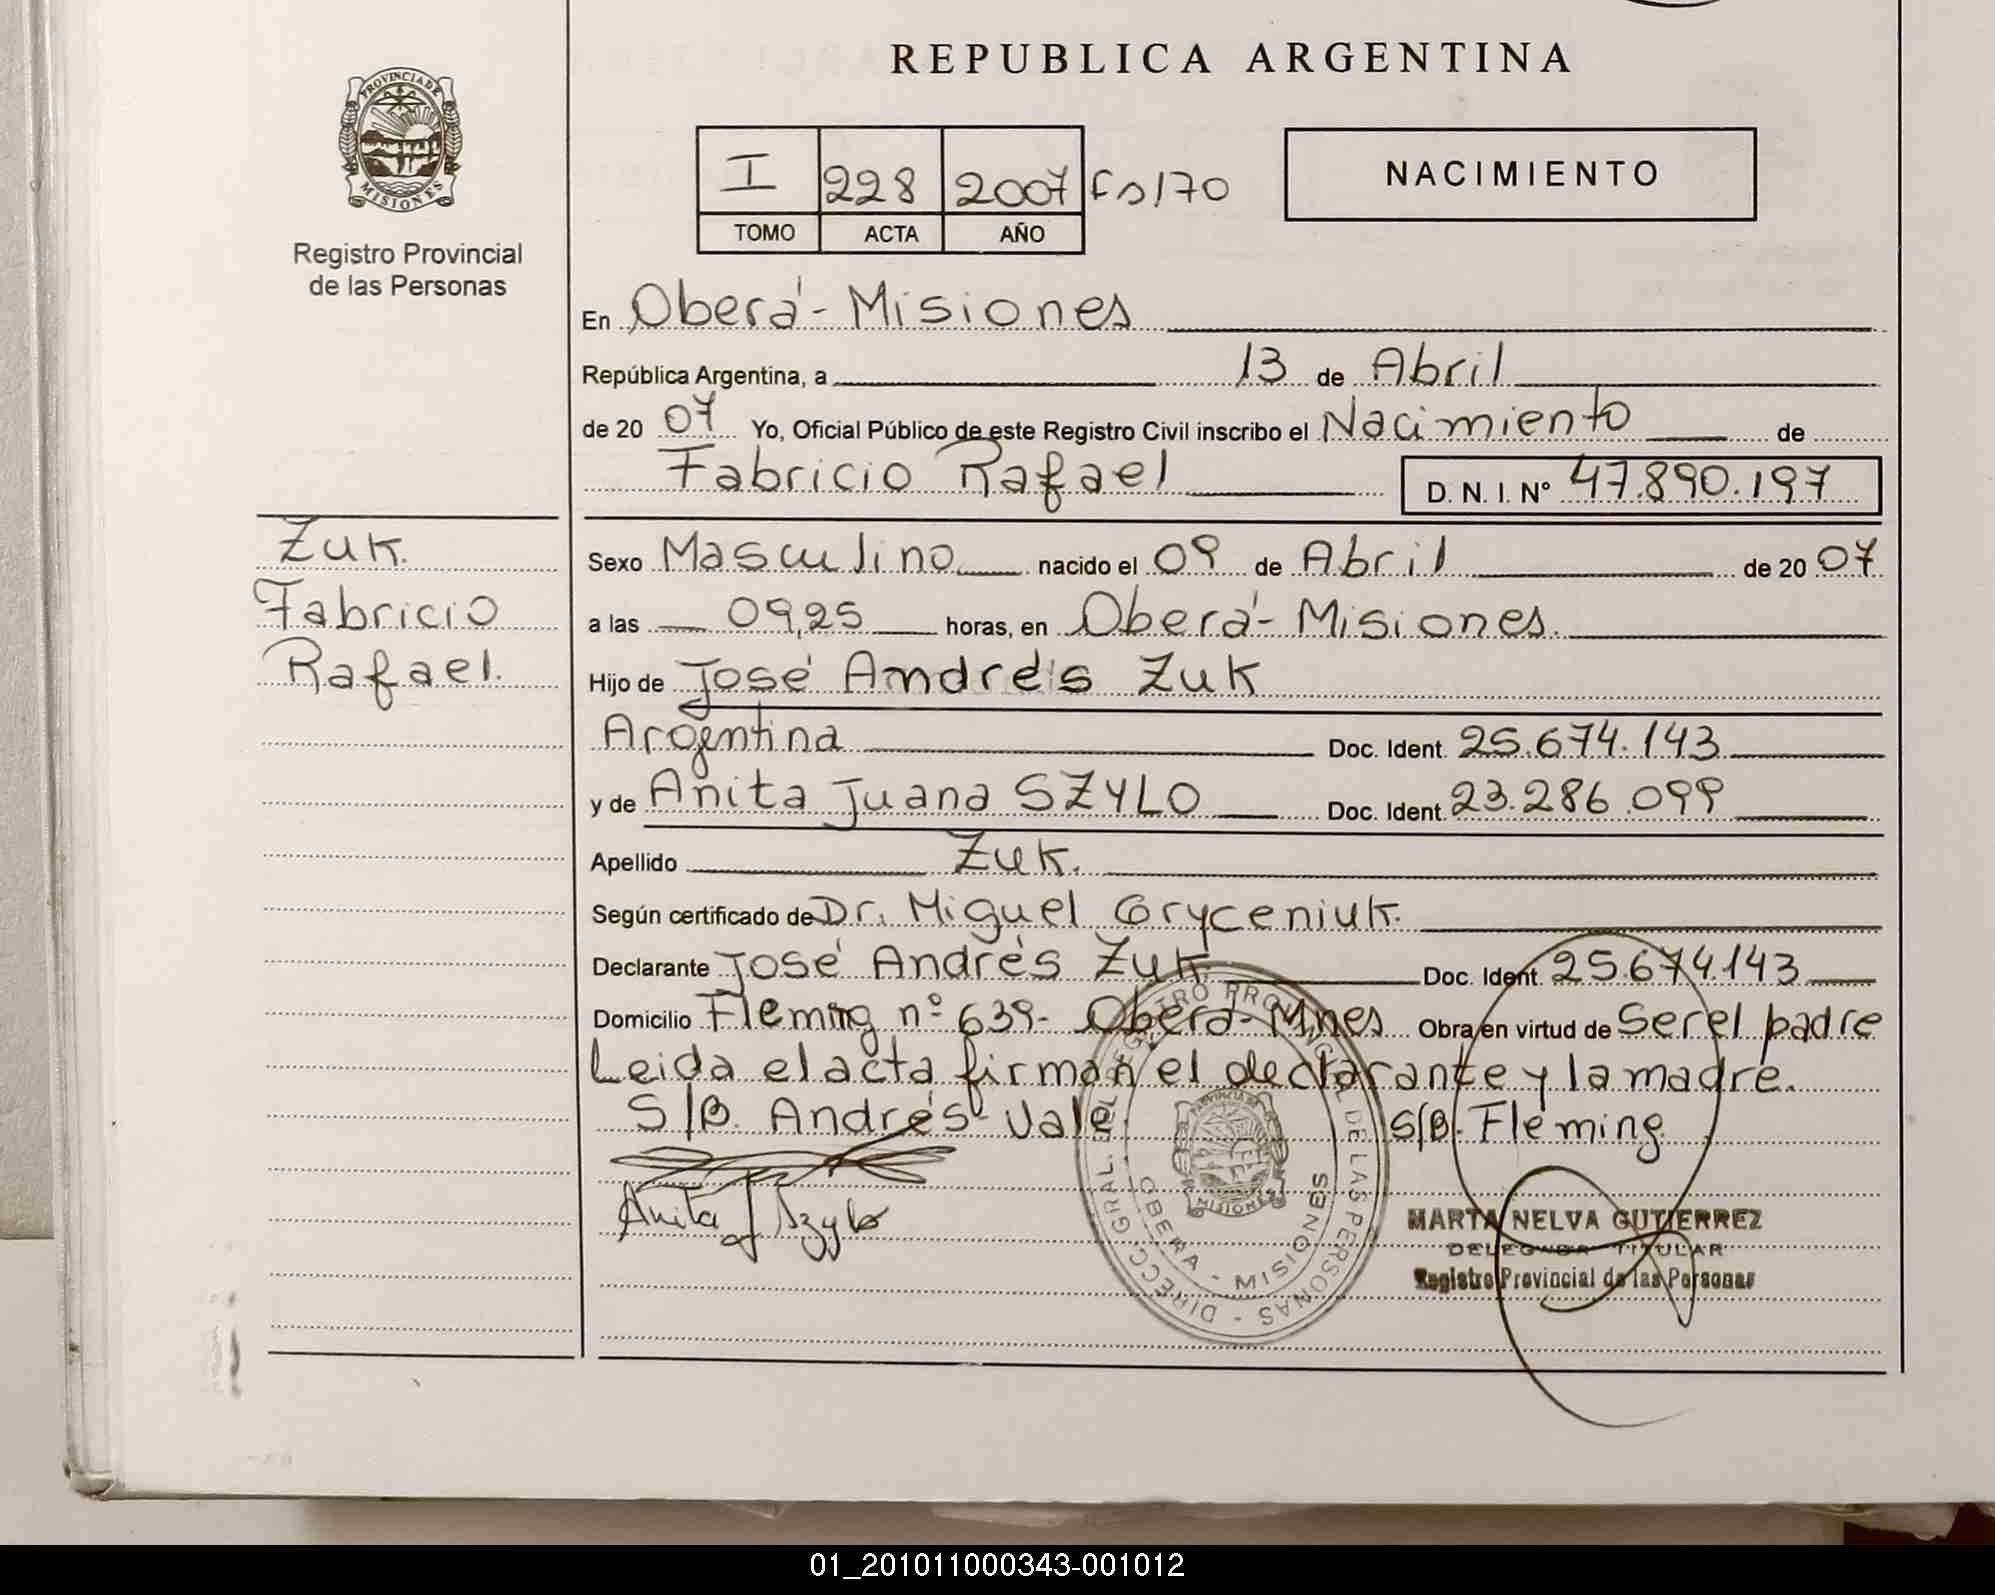 REPUBLICA ARGENTINA
PROVINCIA DE MISIONES
Registro Provincial
de las Personas
I 228 2007 Fs 170
TOMO ACTA AÑO
NACIMIENTO
En Oberá - Misiones
República Argentina, a 13 de Abril
de 20 07 Yo, Oficial Público de este Registro Civil inscribo el Nacimiento de
Fabricio Rafael D. N. I. Nº 47.890.197
Zuk.
Fabricio
Rafael.
Sexo Masculino nacido el 09 de Abril de 20 07
a las 09,25 horas, en Oberá - Misiones.
Hijo de José Andrés Zuk
Argentina Doc. Ident. 25.674.143
y de Anita Juana SZYLO Doc. Ident. 23.286.099
Apellido Zuk.
Según certificado de Dr. Miguel Gryceniuk.
Declarante José Andrés Zuk Doc. Ident. 25.674.143
Domicilio Fleming nº 639- Oberá - Mnes Obra en virtud de Ser el padre
Leida el acta firman el declarante y la madre.
S/B. Andrés Vale S/B. Fleming
Anita J Szylo
DIRECC. GRAL. DEL REGISTRO PROVINCIAL DE LAS PERSONAS -
OBERA - MISIONES
PROVINCIA DE MISIONES
MARTA NELVA GUTIERREZ
DELEGADA TITULAR
Registro Provincial de las Personas
01_201011000343-001012